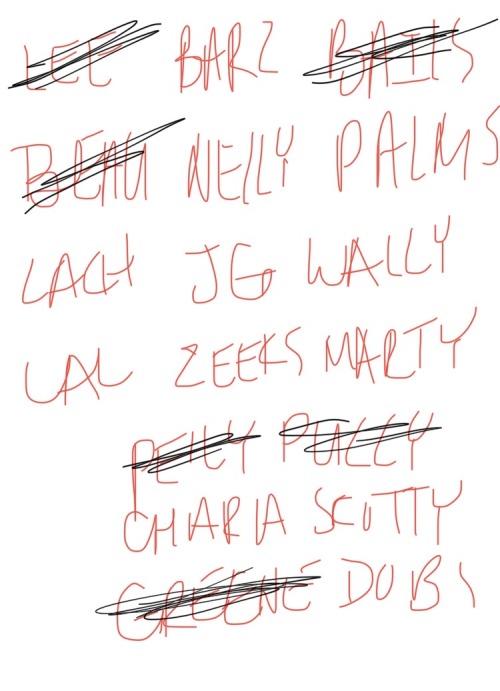 LEE BARZ BAILS
BEAU NELLY PALMS
LACH JG WALLY
LAL ZEEKS MARTY
PEILY PULLY
CHIARIA SCOTTY
GREENE DUBS